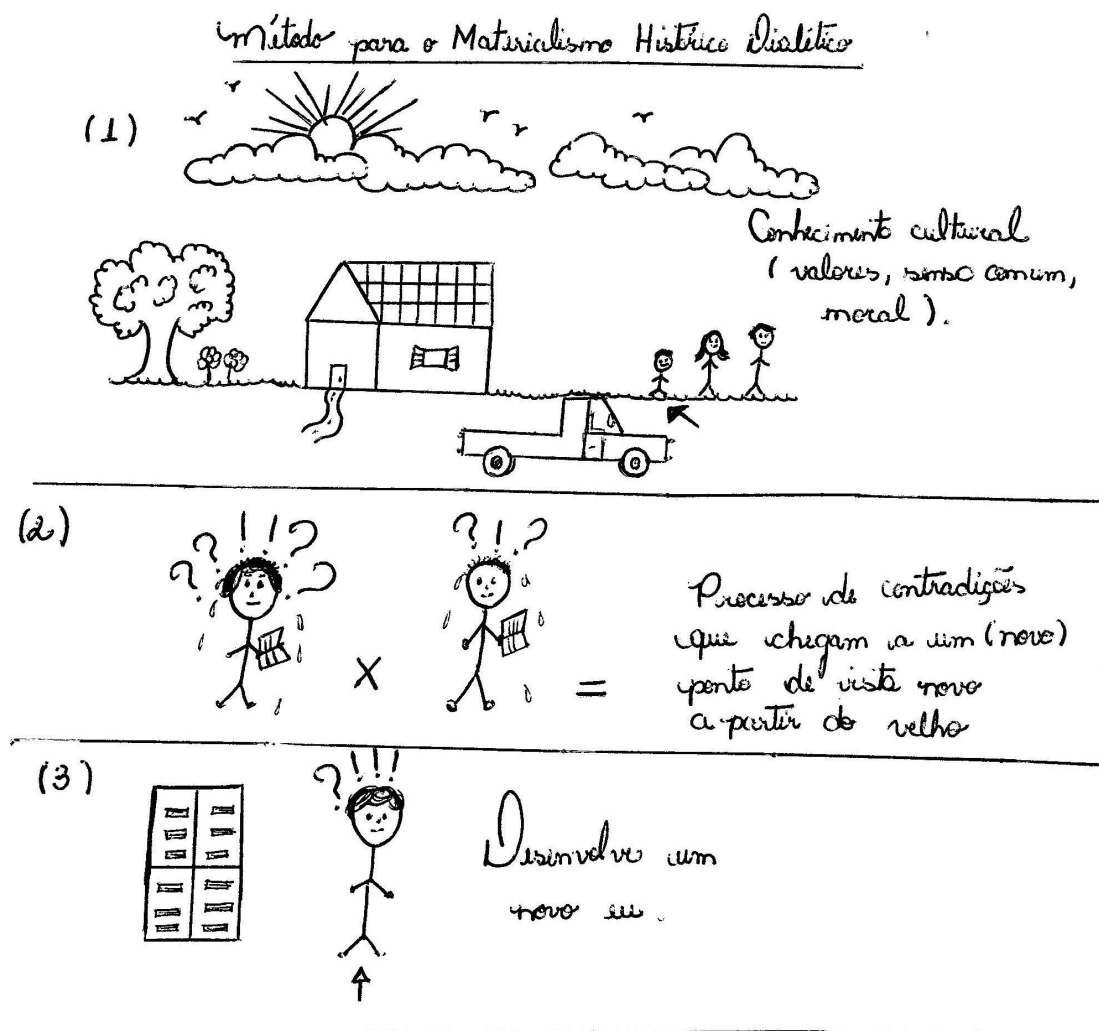 Método para o Materialismo Histórico Dialético
(1)
Conhecimento cultural
(valores, senso comum,
moral).
(2)
? ? ! ! ? ?
? ! ?
X
=
Processo de contradições
que chegam a um (novo)
ponto de vista novo
a partir do velho
(3)
? ! ! !
Desenvolve um
novo eu.